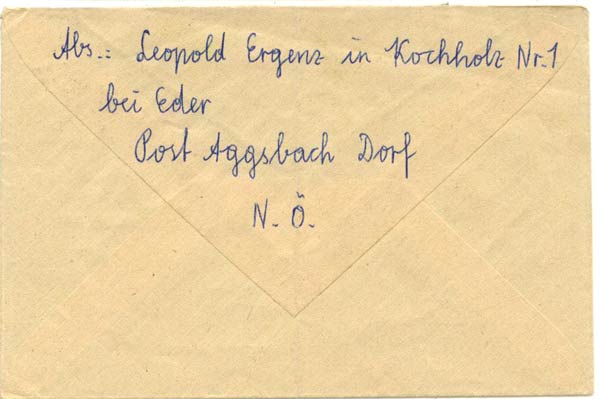 Abs.: Leopold Ergenz in Kochholz Nr. 1
bei Eder
Post Aggsbach Dorf
N. Ö.